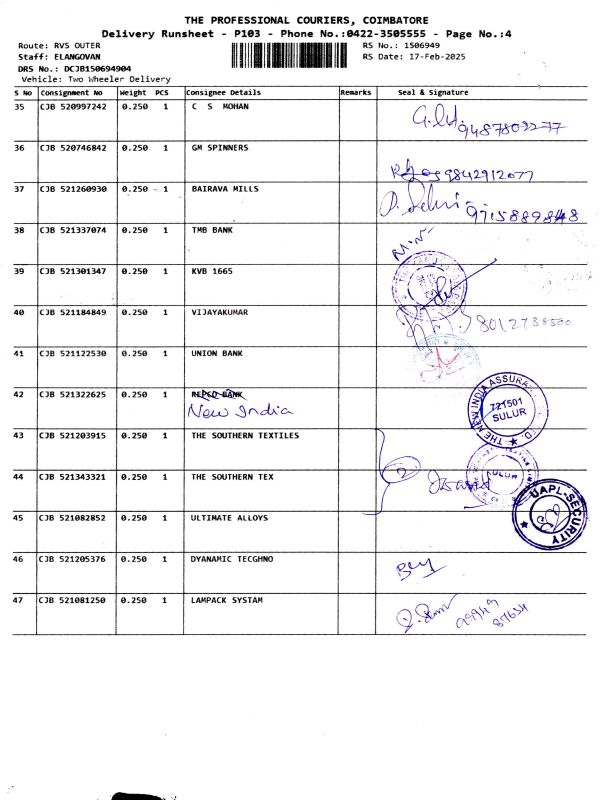 THE PROFESSIONAL COURIERS, COIMBATORE
Delivery Runsheet - P103 - Phone No.:0422-3505555 - Page No.:4
Route: RVS OUTER
RS No.: 1506949
Staff: ELANGOVAN
RS Date: 17-Feb-2025
DRS No.: DCJB150694904
Vehicle: Two Wheeler Delivery
S No Consignment No Weight PCS Consignee Details Remarks Seal & Signature
35 CJB 520997242 0.250 1 C S MOHAN
36 CJB 520746842 0.250 1 GM SPINNERS
9842912077
37 CJB 521260930 0.250 1 BAIRAVA MILLS
9715889848
38 CJB 521337074 0.250 1 TMB BANK
39 CJB 521301347 0.250 1 KVB 1665
40 CJB 521184849 0.250 1 VIJAYAKUMAR
8012738500
41 CJB 521122530 0.250 1 UNION BANK
42 CJB 521322625 0.250 1 REPCO BANK
New India
THE NEW INDIA ASSURA
721501
SULUR
43 CJB 521203915 0.250 1 THE SOUTHERN TEXTILES
2
SULUR
44 CJB 521343321 0.250 1 THE SOUTHERN TEX
UAPL-SECURITY
45 CJB 521082852 0.250 1 ULTIMATE ALLOYS
46 CJB 521205376 0.250 1 DYANAMIC TECGHNO
47 CJB 521081250 0.250 1 LAMPACK SYSTAM